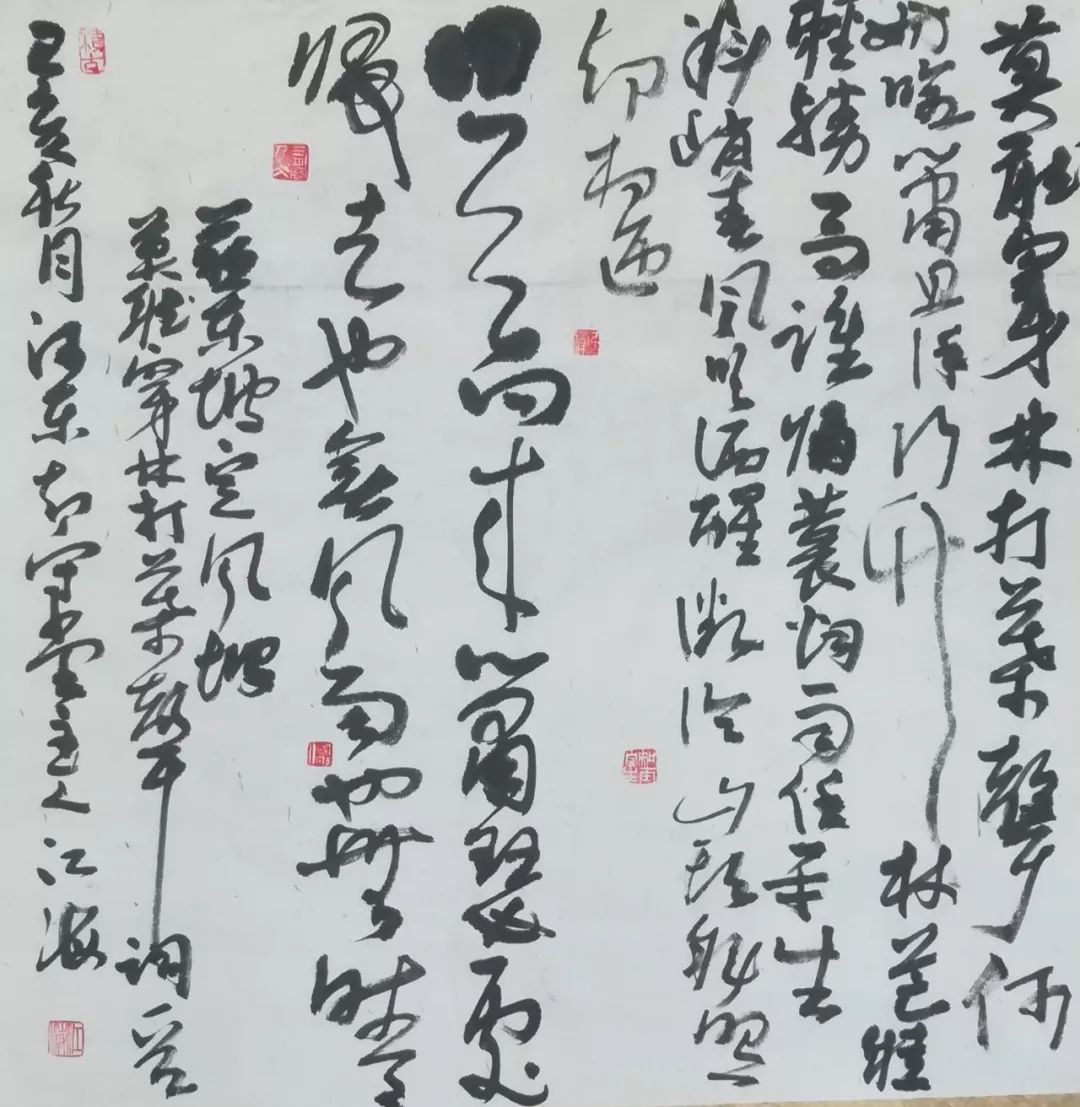 莫聽穿林打葉聲何
妨吟嘯且徐行竹杖芒鞋
輕勝馬誰怕蓑烟雨任平生
料峭春風吹酒醒微冷山頭斜照
却相迎
回首向來蕭瑟處
歸去也無風雨也無晴
蘇東坡定風波
莫聽穿林打葉聲詞
己亥秋月江東守堂主人江海